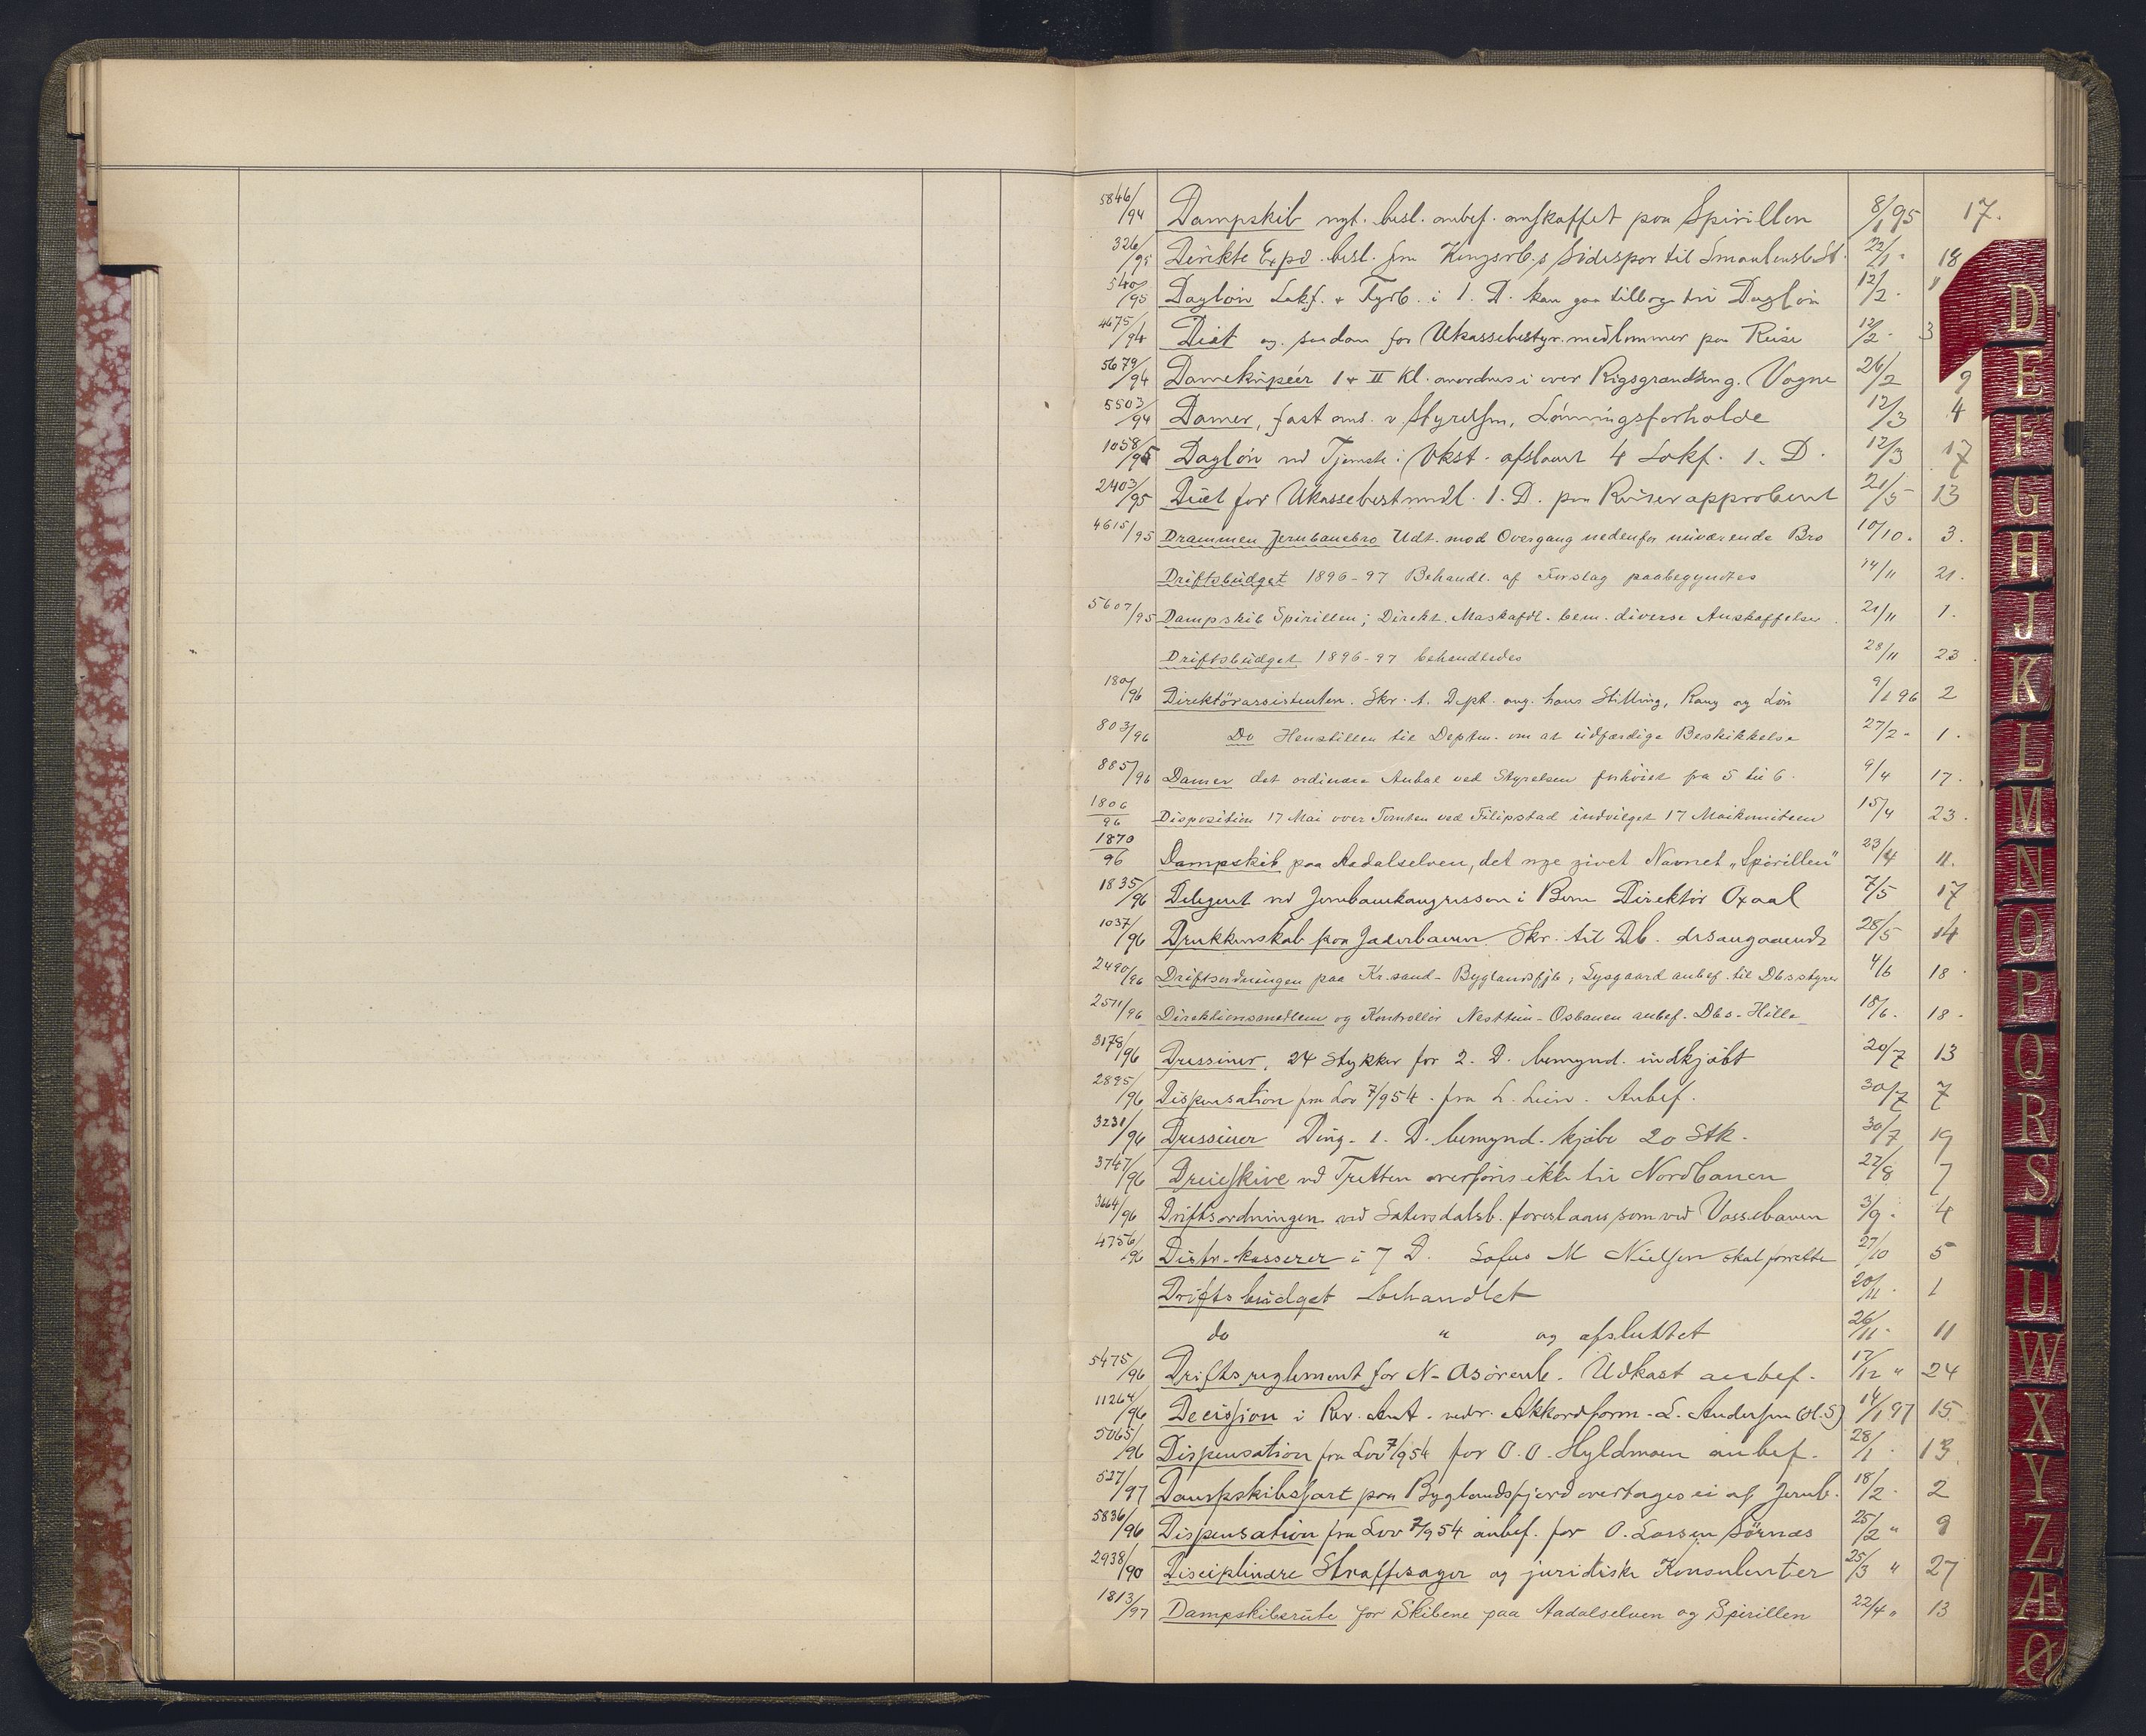 5846/94 Dampskib nyt. besl. anbef. anskaffet paa Spirillen 8/1 95 17.
326/95 Direkte Exp. besl. fra Kongsvb.s Sidespor til Smaalensb. St. 22/1 " 18
540/95 Dagløn Lokf. & Fyrb. i 1. D. kan gaa tilbage til Dagløn 12/2 . "
4675/94 Diæt og saadan for Ukassebestyr. medlemmer paa Reise 12/2 - 3
5679/94 Damekupéer I & II Kl. anordnes i over Rigsgrændsen g. Vogne 26/2 9
5503/94 Damer, fast ans. v. Styrelsen, Lønningsforholde 12/3 4
1058/95 Dagløn ved Tjeneste i Vkst. afslaaet 4 Lokf. 1. D. 12/3 17
2403/95 Diæt for Ukassebest. medl. 1. D. paa Reiser approberet 21/5 13
4615/95 Drammen Jernbanebro Udt. mod Overgang nedenfor nuværende Bro 10/10. 3.
Driftsbudget 1896-97 Behandl. af Forslag paabegyndtes 14/11 21.
5607/95 Dampskib Spirillen; Direkt. Maskafdl. bem. diverse Anskaffelser. 21/11 1.
Driftsbudget 1896-97 behandledes 28/11 23.
180/96 Direktörassistenten. Skr. t. Dept. ang. hans Stilling, Rang og Løn 9/1 96 2
803/96 Do Henstillen til Deptm. om at udfærdige Beskikkelse 27/2 - 1.
885/96 Damer det ordinære Antal ved Styrelsen forhöiet fra 5 til 6. 9/4 17.
1806/96 Disposition 17 Mai over Tomten ved Filipstad indvilget 17 Maikomiteen 15/4 23.
1870/96 Dampskib paa Aadalselven, det nye givet Navnet "Spirillen" 23/4 11.
1835/96 Delegeret ved Jernbanekongressen i Bern Direktör Oxaal 7/5 17
1037/96 Drukkenskab paa Jæderbanen. Skr. til Db. desangaaende 28/5 14
2490/96 Driftsordningen paa Kr.sand-Byglandsfjb; Lysgaard anbef. til Dbsstyrer 4/6 18.
2571/96 Direktionsmedlem og Kontrollör Nesttun-Osbanen anbef. Dbs. Hille 18/6. 18.
3178/96 Dressiner, 24 Stykker for 2. D. bemynd. indkjøbt 20/7 13
2895/96 Dispensation fra Lov 7/9 54. fra L. Lein. Anbef. 30/7 7
3231/96 Dressiner Ding. 1. D. bemynd. kjøbe 20 Stk. 30/7 19
3747/96 Dreieskive ved Tretten overføres ikke til Nordbanen 27/8 7
3664/96 Driftsordningen ved Sætersdalsb. foreslaaes som ved Vossebanen 3/9. 4
4756/96 Distr. kasserer i 7 D. Sofus M Nielsen skal forrette 27/10 5
Driftsbudget behandlet 20/11. 1
do " og afsluttet 26/11. 11
5475/96 Driftsreglement for N-Asörenb. Udkast anbef. 17/12 " 24
11264/96 Decission i Rev. Ant. vedr. Akkordform. L. Andersen (H.S) 14/1 97 15
5065/96 Dispensation fra Lov 7/9 54 for O. O. Hyldmoen anbef. 28/1 13
527/97 Dampskibsfart paa Byglandsfjord overtages ei af Jernb. 18/2. 2
5836/96 Dispensation fra Lov 7/9 54 anbef. for O. Larsen Sörnæs 25/2 " 9
2938/90 Disciplinære Straffesager og juridiske Konsulenter 25/3 " 27
1813/97 Dampskibsrute for Skibene paa Aadalselven og Spirillen 22/4 " 13
D
E
F
G
H
J
K
L
M
N
O
P
Q
R
S
T
U
W
X
Y
Z
Æ
Ø